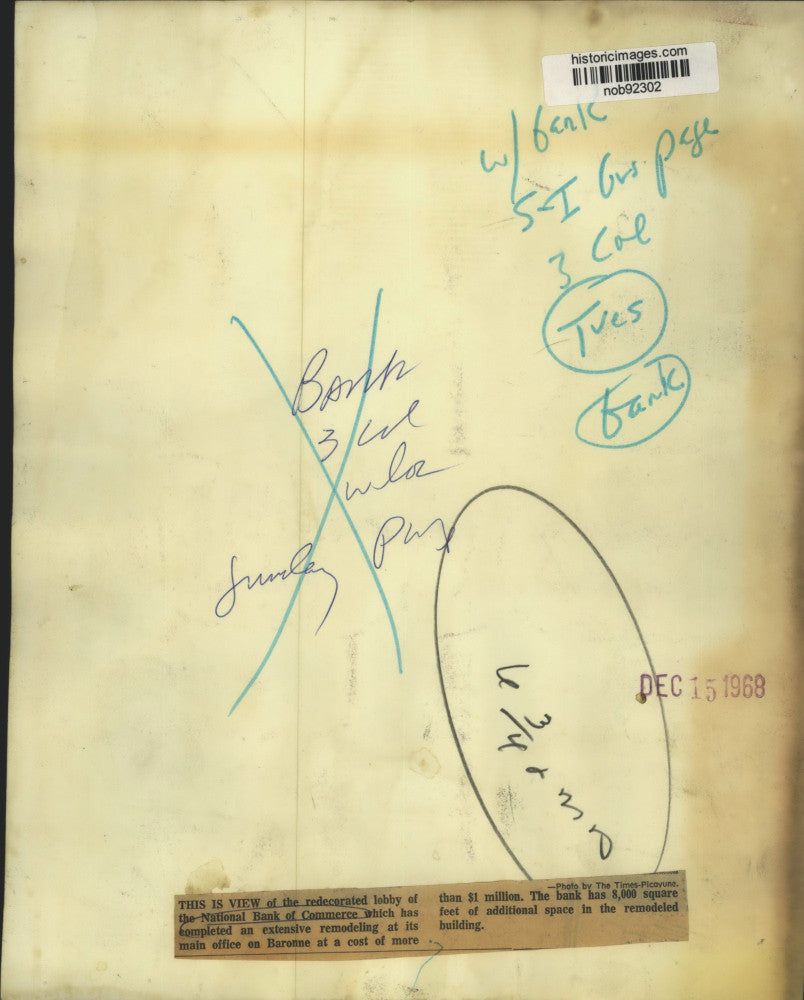 historicimages.com
nob92302
w/ bank
5-I Bus page
3 Col
Tues
bank
Bank
3 col
Sunday
DEC 15 1968
6 3/4 x
—Photo by The Times-Picayune.
THIS IS VIEW of the redecorated lobby of
the National Bank of Commerce which has
completed an extensive remodeling at its
main office on Baronne at a cost of more
than $1 million. The bank has 8,000 square
feet of additional space in the remodeled
building.